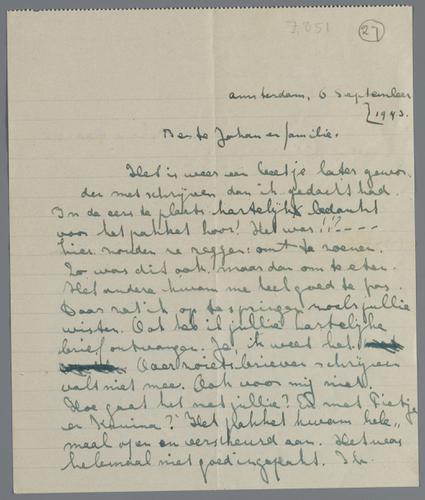 7.851
27
Amsterdam, 6 September
1943.
Beste Johan en familie.
Het is weer een beetje later gewor-
den met schrijven dan ik gedacht had.
In de eerste plaats hartelijk bedankt
voor het pakket hoor! Het was !!?----
hier zouden ze zeggen: om te zoenen.
Zo was dit ook, maar dan om te eten.
Het andere kwam me heel goed te pas.
Daar zat ik op te springen zoals jullie
wisten. Ook heb ik jullie hartelijke
brief ontvangen. Ja, ik weet het
Over zoiets brieven schrijven
valt niet mee. Ook voor mij niet.
Hoe gaat het met jullie? En met Pietje
en Hanina? Het pakket kwam hele-
maal open en verscheurd aan. Het was
helemaal niet goed ingepakt. Ik